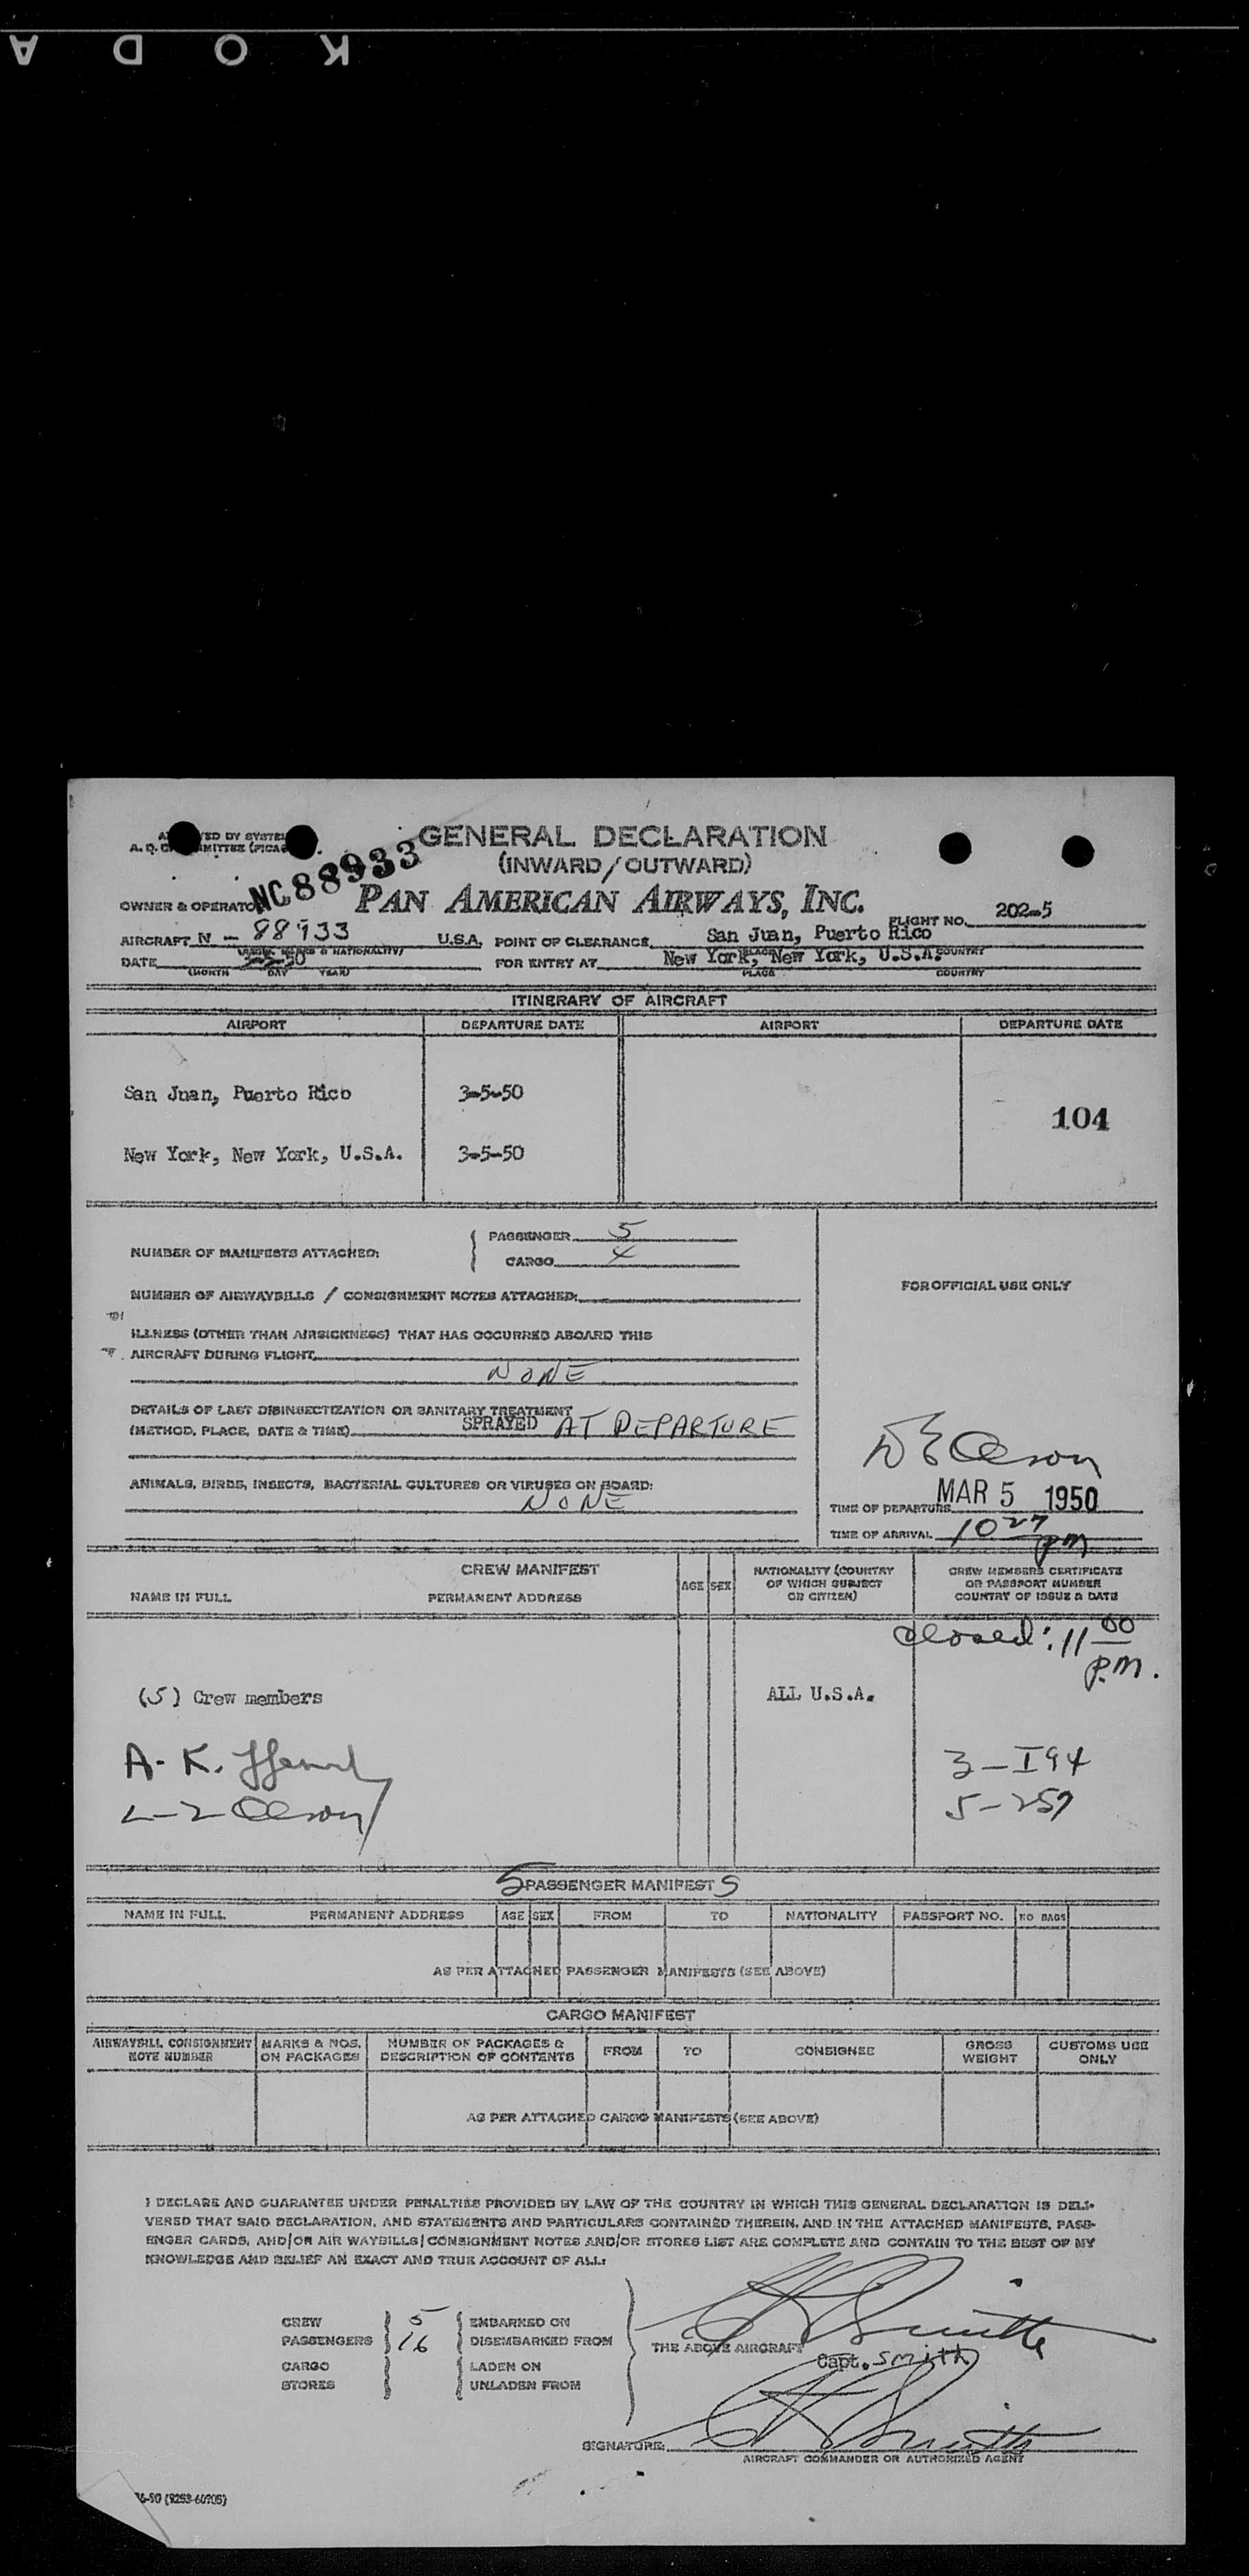 KODA
GENERAL DECLARATION
(INWARD/OUTWARD)
NC88933
OWNER & OPERATOR PAN AMERICAN AIRWAYS, INC.
FLIGHT NO. 202-5
AIRCRAFT N - 88933 U.S.A. POINT OF CLEARANCE San Juan, Puerto Rico
DATE FOR ENTRY AT New York, New York, U.S.A.
(MONTH DAY YEAR) PLACE COUNTRY
ITINERARY OF AIRCRAFT
AIRPORT DEPARTURE DATE AIRPORT DEPARTURE DATE
San Juan, Puerto Rico 3-5-50
104
New York, New York, U.S.A. 3-5-50
NUMBER OF MANIFESTS ATTACHED: PASSENGER 5
CARGO 4
FOR OFFICIAL USE ONLY
NUMBER OF AIRWAYBILLS / CONSIGNMENT NOTES ATTACHED:
ILLNESS (OTHER THAN AIRSICKNESS) THAT HAS OCCURRED ABOARD THIS
AIRCRAFT DURING FLIGHT
NONE
DETAILS OF LAST DISINSECTIZATION OR SANITARY TREATMENT
(METHOD, PLACE, DATE & TIME) SPRAYED AT DEPARTURE
Olson
ANIMALS, BIRDS, INSECTS, BACTERIAL CULTURES OR VIRUSES ON BOARD:
NONE
TIME OF DEPARTURE MAR 5 1950
TIME OF ARRIVAL 10 27 PM
CREW MANIFEST
NAME IN FULL PERMANENT ADDRESS AGE SEX NATIONALITY (COUNTRY OF WHICH SUBJECT OR CITIZEN) CREW MEMBERS CERTIFICATE OR PASSPORT NUMBER COUNTRY OF ISSUE & DATE
closed: 11 00 P.M.
(5) Crew members ALL U.S.A.
A. K. 3-I94
Olson 5-257
5 PASSENGER MANIFEST S
NAME IN FULL PERMANENT ADDRESS AGE SEX FROM TO NATIONALITY PASSPORT NO. NO BAGS
AS PER ATTACHED PASSENGER MANIFESTS (SEE ABOVE)
CARGO MANIFEST
AIRWAYBILL CONSIGNMENT NOTE NUMBER MARKS & NOS. ON PACKAGES NUMBER OF PACKAGES & DESCRIPTION OF CONTENTS FROM TO CONSIGNEE GROSS WEIGHT CUSTOMS USE ONLY
AS PER ATTACHED CARGO MANIFESTS (SEE ABOVE)
I DECLARE AND GUARANTEE UNDER PENALTIES PROVIDED BY LAW OF THE COUNTRY IN WHICH THIS GENERAL DECLARATION IS DELI-
VERED THAT SAID DECLARATION, AND STATEMENTS AND PARTICULARS CONTAINED THEREIN, AND IN THE ATTACHED MANIFESTS, PASS-
ENGER CARDS, AND/OR AIR WAYBILLS/CONSIGNMENT NOTES AND/OR STORES LIST ARE COMPLETE AND CONTAIN TO THE BEST OF MY
KNOWLEDGE AND BELIEF AN EXACT AND TRUE ACCOUNT OF ALL:
CREW 5 EMBARKED ON
PASSENGERS 16 DISEMBARKED FROM THE ABOVE AIRCRAFT
Smith
Capt. Smith
CARGO LADEN ON
STORES UNLADEN FROM
SIGNATURE: Smith
AIRCRAFT COMMANDER OR AUTHORIZED AGENT